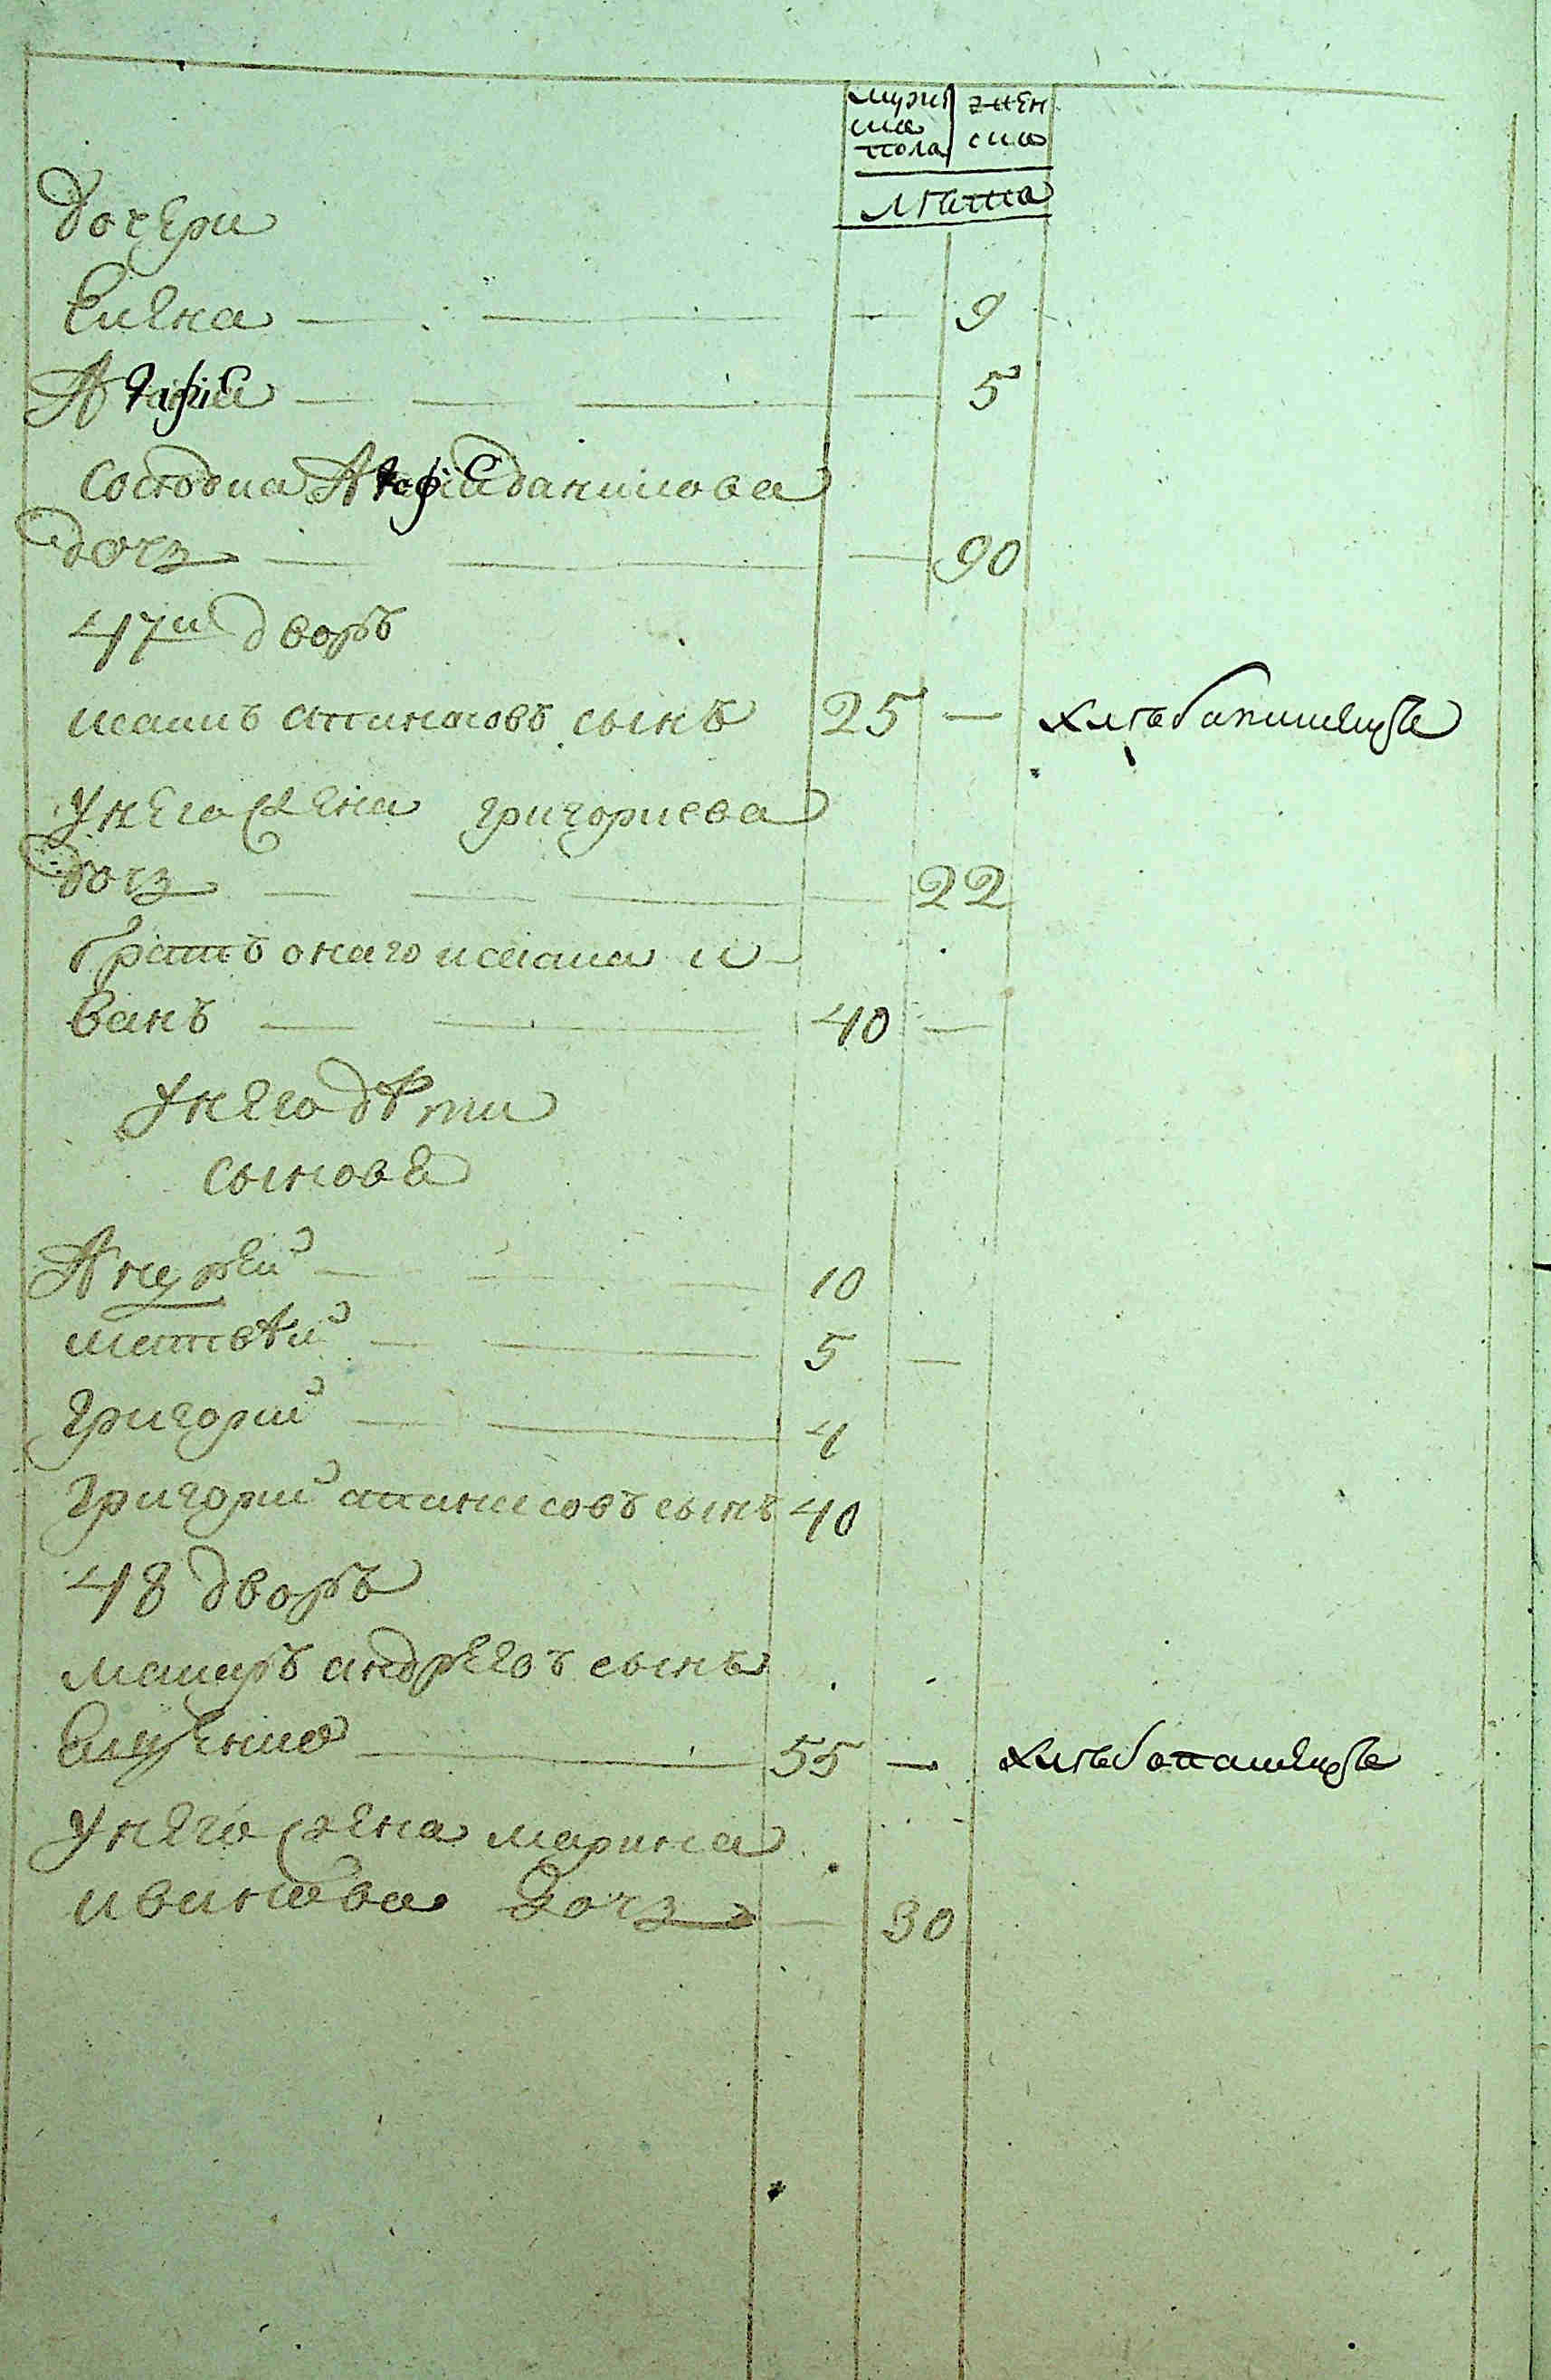 мужс жен
ка ска
пола
лѣта
дочери
Елена — 9
Агафiя — 5
состоя на Агафiя данилова
дочь — 90
47й дворъ
исакъ апанасовъ сынъ 25 — хлѣбапашецъ
У него жена григориева
дочь — 22
братъ онаго исака и
ванъ — 40 —
У него дѣти
сынове
Андрей — 10
матвѣй — 5 —
Григорий — 4
Григорий апанасовъ сынъ 40
48 дворъ
макаръ андреевъ сынъ
— 55 — хлѣбопашецъ
У него жена марина
иванова дочь — 30